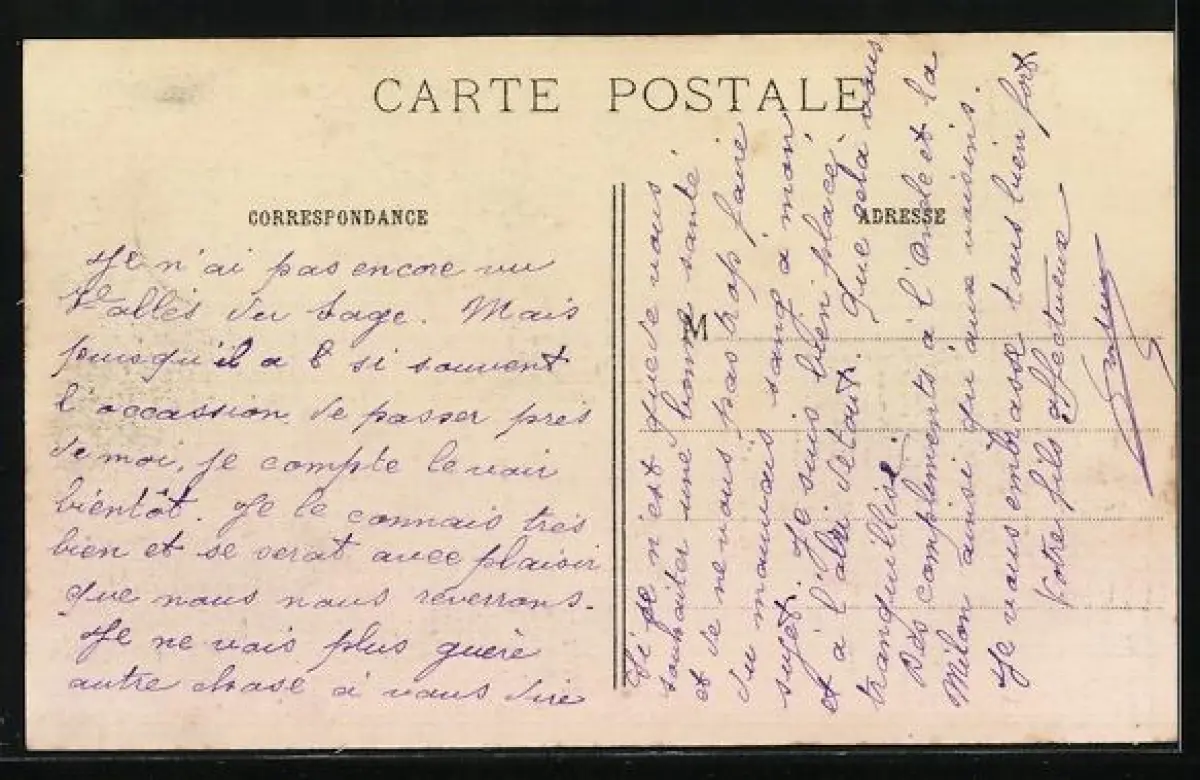 CARTE POSTALE
CORRESPONDANCE
ADRESSE
M
Je n'ai pas encore vu
Vallès du tage. Mais
puisqu'il a si souvent
l'occassion de passer près
de moi, je compte le voir
bientôt. Je le connais très
bien et se serat avec plaisir
que nous nous reverrons.
Je ne vois plus guère
autre chose à vous dire
Si je n'est que de vous
souhaiter une bonne santé
et de ne vous pas trop faire
du mauvais sang à mon
sujet. Je suis bien placé
et à l'abri de tout. Que cela vous
tranquillise.
Des compliments à l'onde et la
Milon ainsi qu'aux voisins.
Je vous embrasse tous bien fort
Votre fils affectueux